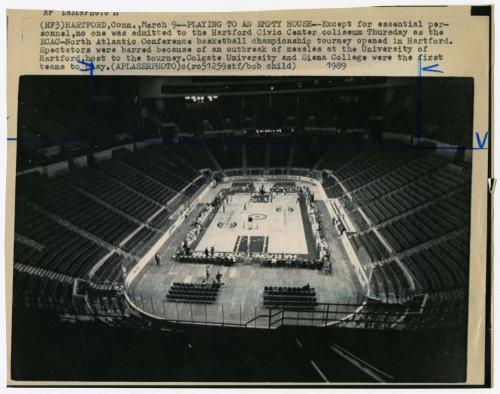 AP LASERPHOTO
(HF3)HARTFORD,Conn.,March 9--PLAYING TO AN EMPTY HOUSE--Except for essential per-
sonnel,no one was admitted to the Hartford Civic Center coliseum Thursday as the
ECAC-North Atlantic Conference basketball championship tourney opened in Hartford.
Spectators were barred because of an outbreak of measles at the University of
Hartford,host to the tourney.Colgate University and Siena College were the first
teams to play.(APLASERPHOTO)c(rc51259stf/bob child) 1989
V
HARTFORD